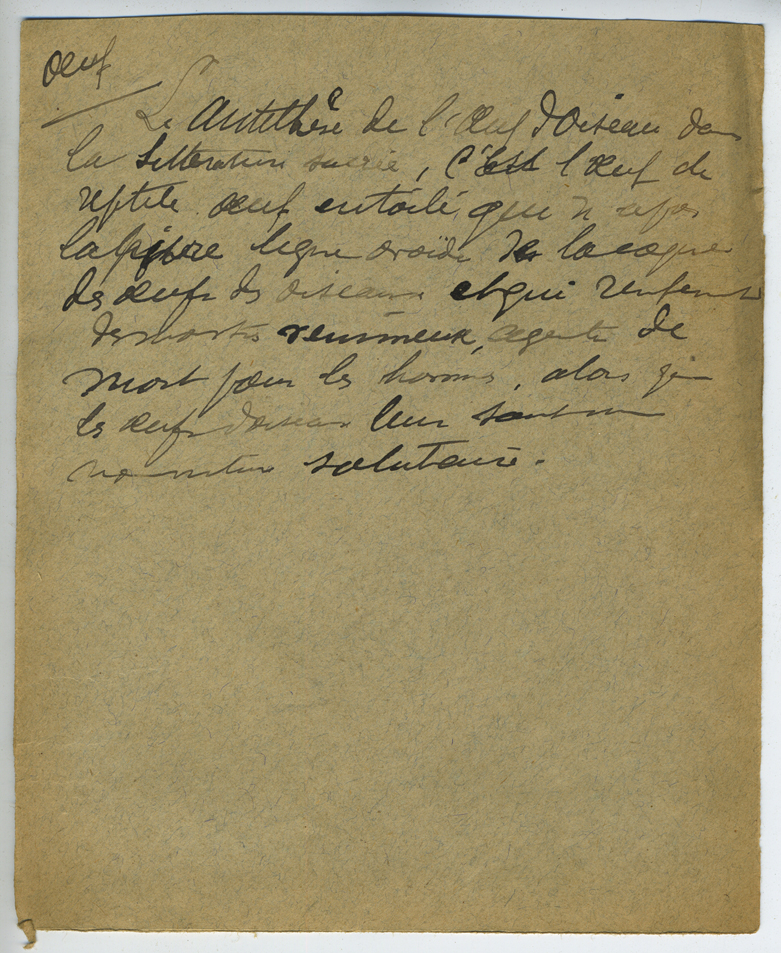 œuf
Le antithèse de l'œuf d'oiseau dans
la littérature sacrée, c'est l'œuf de
reptile œuf entoilé, qui n'a pas
la pure ligne ovoïde de la coque
des œufs des oiseaux et qui renferme
des venimeux, agents de
mort pour les hommes, alors que
les œufs d'oiseaux leur sont une
nourriture salutaire.